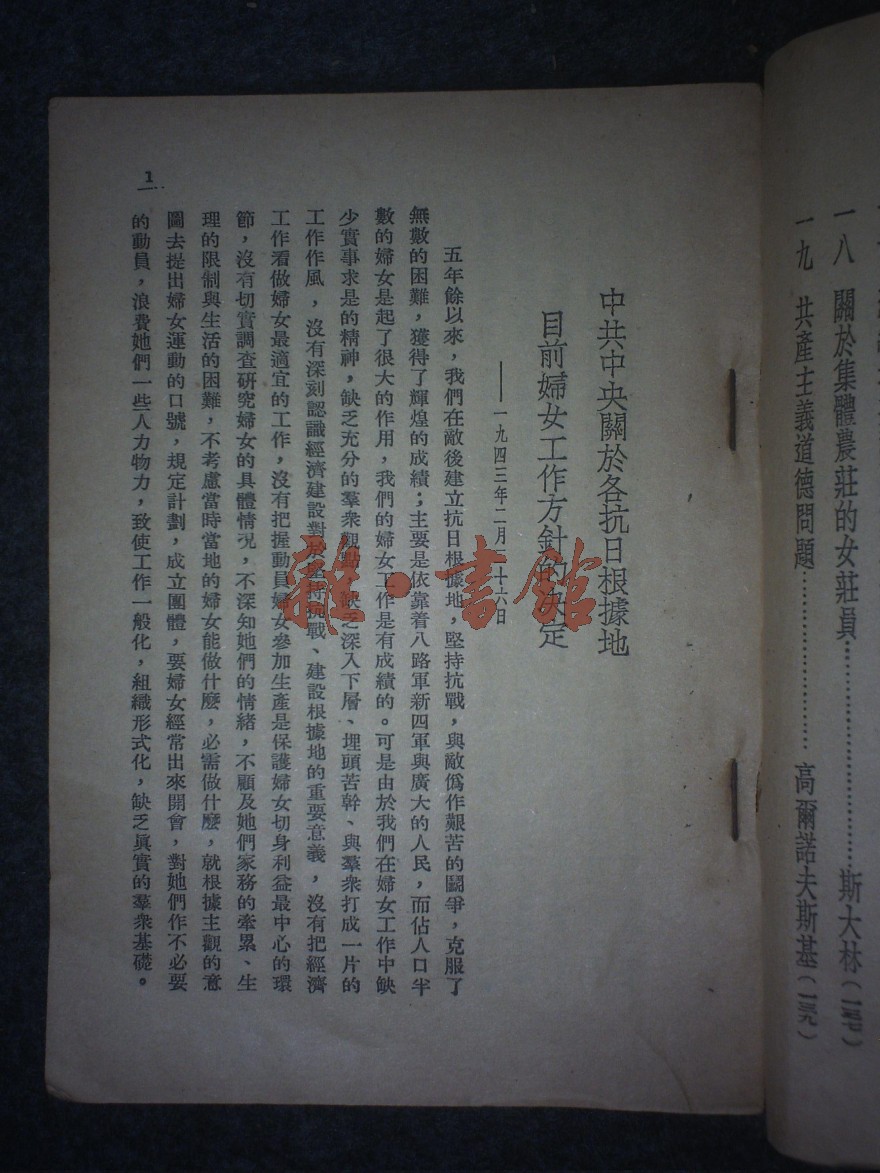 一八 關於集體農莊的女莊員…………………………斯大林（一四七）
一九 共產主義道德問題…………………………高爾諾夫斯基（一五九）
中共中央關於各抗日根據地
目前婦女工作方針的決定
——一九四三年二月二十六日
五年餘以來，我們在敵後建立抗日根據地，堅持抗戰，與敵僞作艱苦的鬭爭，克服了
無數的困難，獲得了輝煌的成績；主要是依靠着八路軍新四軍與廣大的人民，而佔人口半
數的婦女是起了很大的作用，我們的婦女工作是有成績的。可是由於我們在婦女工作中缺
少實事求是的精神，缺乏充分的羣衆觀點，缺乏深入下層、埋頭苦幹、與羣衆打成一片的
工作作風，沒有深刻認識經濟建設對於堅持抗戰、建設根據地的重要意義，沒有把經濟
工作看做婦女最適宜的工作，沒有把握動員婦女參加生產是保護婦女切身利益最中心的環
節，沒有切實調查研究婦女的具體情況，不深知她們的情緒，不顧及她們家務的牽累、生
理的限制與生活的困難，不考慮當時當地的婦女能做什麼，必需做什麼，就根據主觀的意
圖去提出婦女運動的口號，規定計劃，成立團體，要婦女經常出來開會，對她們作不必要
的動員，浪費她們一些人力物力，致使工作一般化，組織形式化，缺乏眞實的羣衆基礎。
1
雜·書館